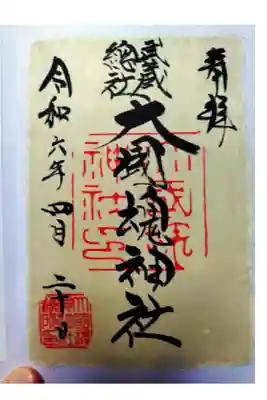 奉拝
武蔵
總社
大國魂神社
令和六年四月二十日